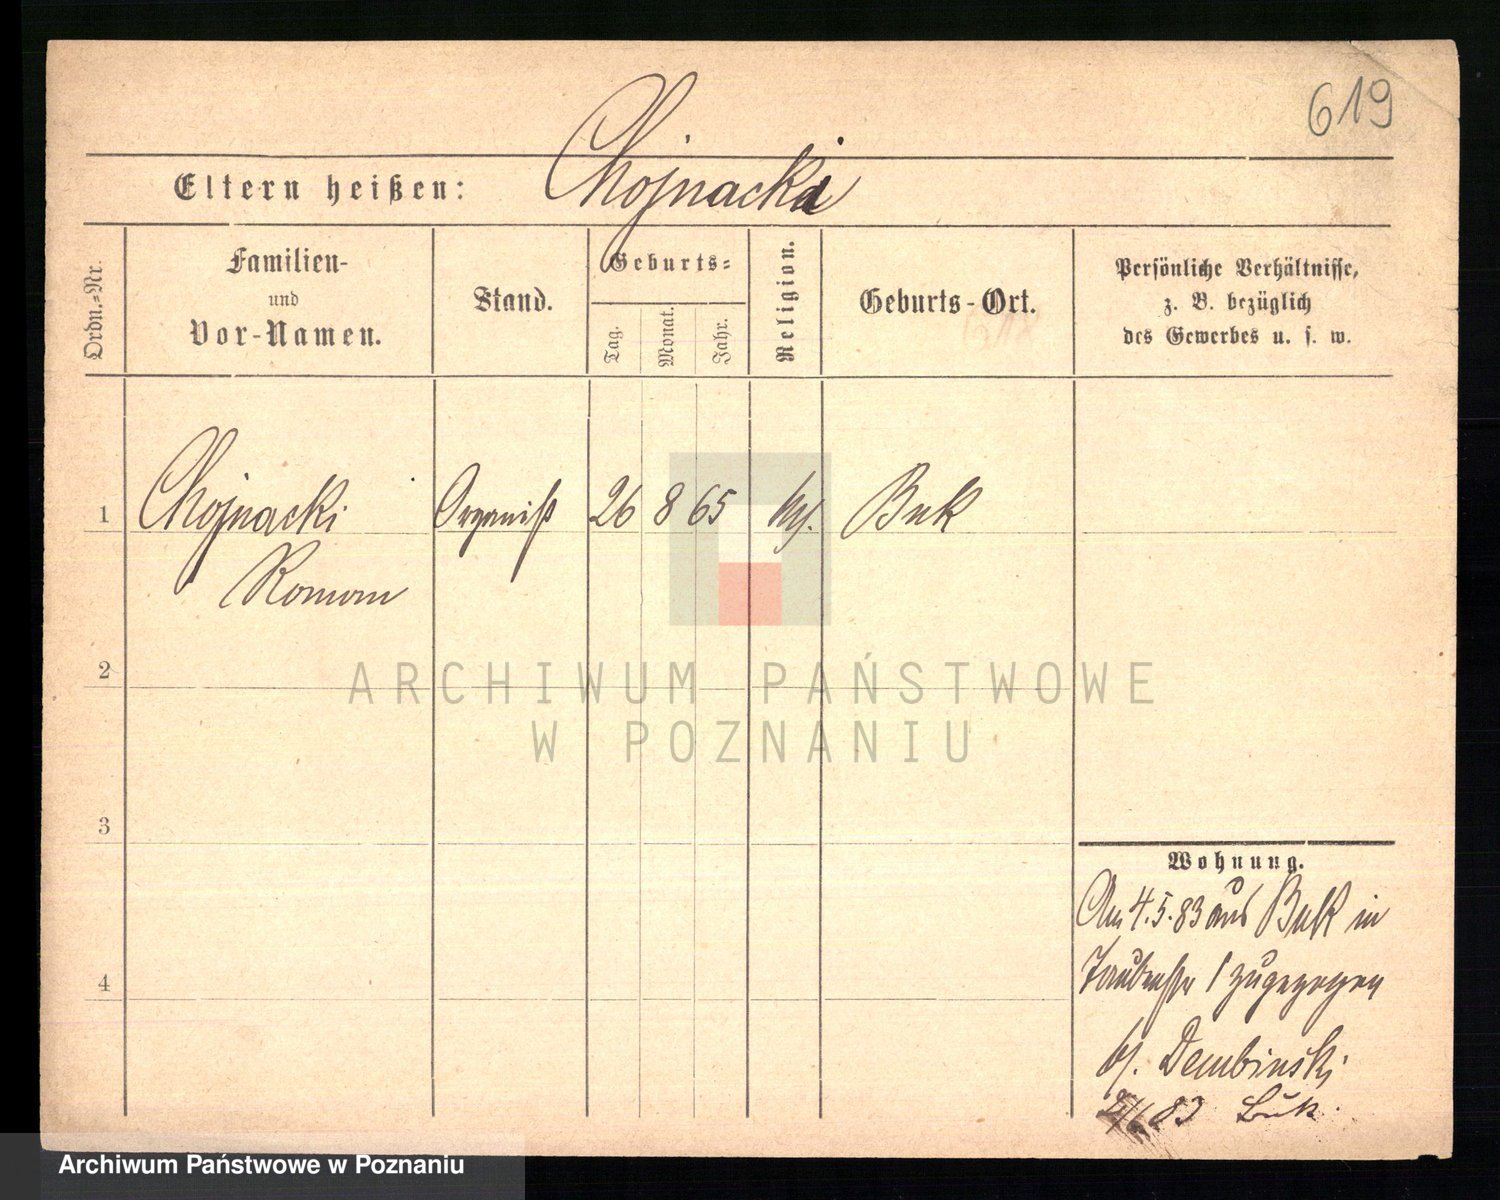 619
Eltern heißen: Chojnacki
Ordn.=Nr.
Familien-
und
Vor-Namen.
Stand.
Geburts=
Tag.
Monat.
Jahr.
Religion.
Geburts-Ort.
Persönliche Verhältnisse,
z. B. bezüglich
des Gewerbes u. s. w.
1 Chojnacki Organist 26 8 65 Buk
Roman
2
ARCHIWUM PAŃSTWOWE
W POZNANIU
3
Wohnung.
Am 4.5.83 aus Buk in
Taubenstr 1 zugezogen
b/. Dembinski
83 Buk.
4
Archiwum Państwowe w Poznaniu